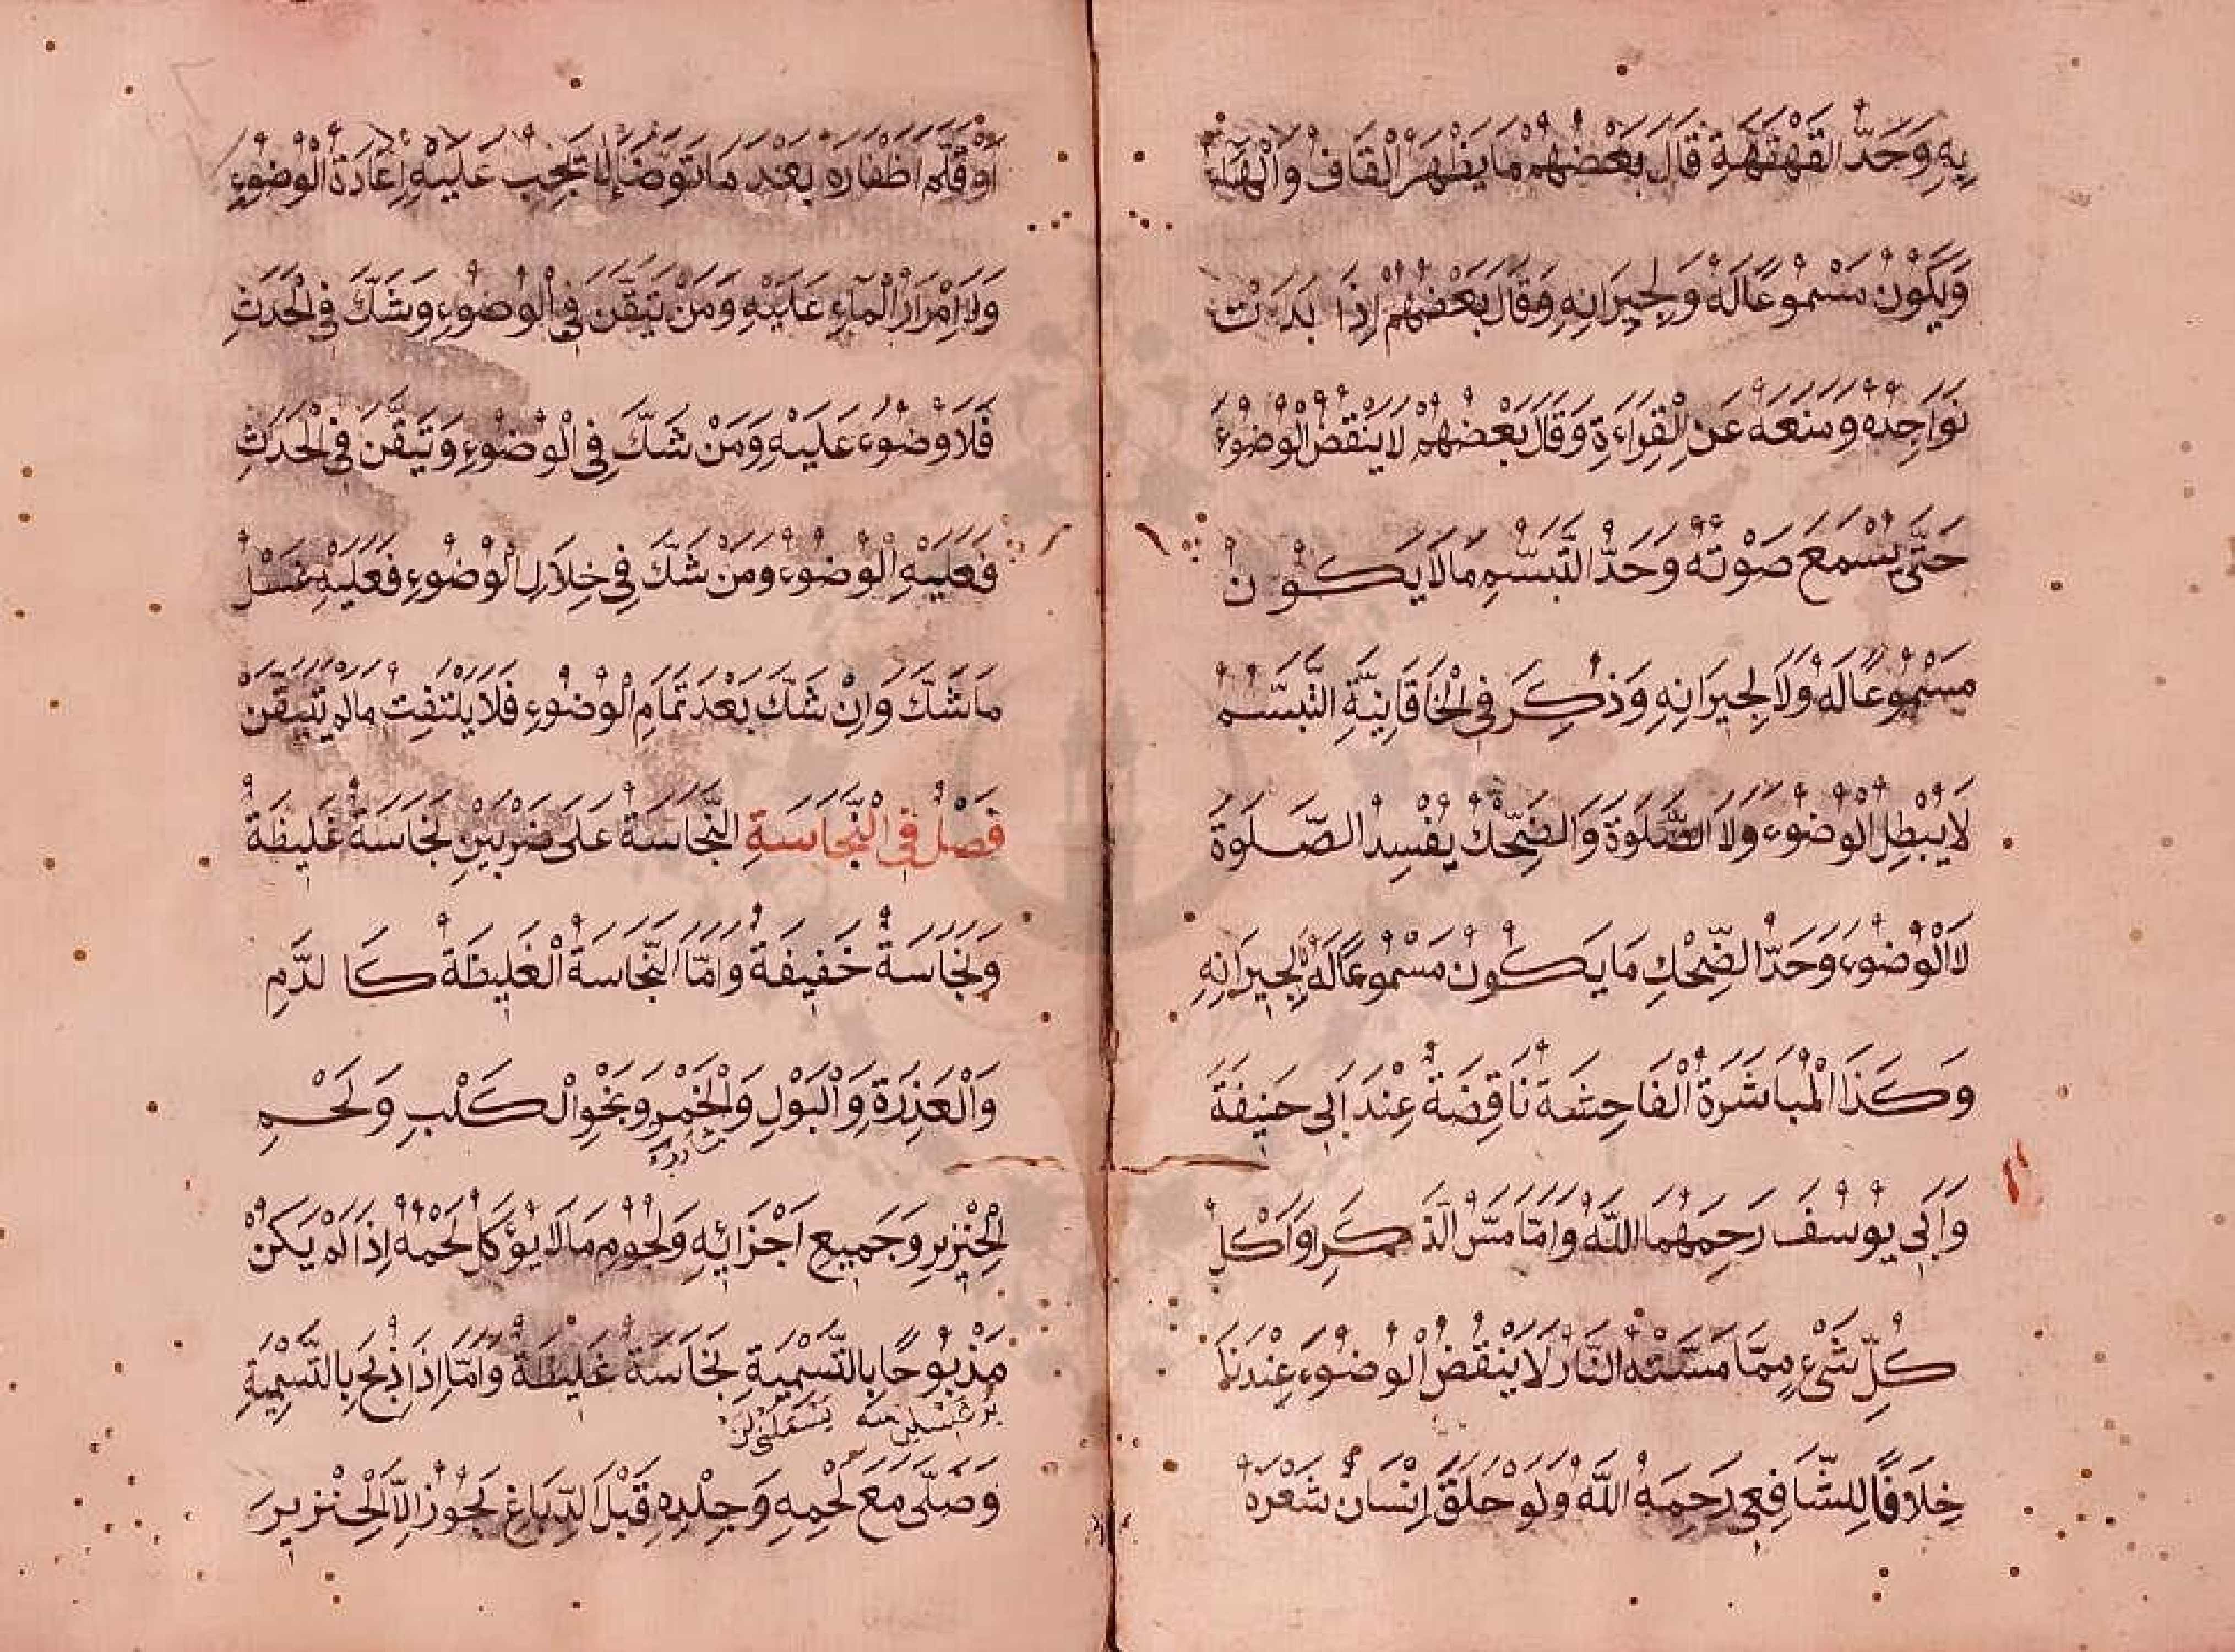 يهِ وَحَدُّ الْقَهْقَهَةِ قَالَ بَعْضُهُمْ مَا يَظْهَرُ الْقَافُ وَالْهَاءُ
وَيَكُوْنُ مَسْمُوْعًا لَهُ وَلِجِيرَانِهِ وَقَالَ بَعْضُهُمْ اِذَا بَدَتْ
نَوَاجِذُهُ وَمَنَعَهُ عَنِ الْقِرَاءَةِ وَقَالَ بَعْضُهُمْ لَا يَنْقُضُ الْوُضُوْءَ
حَتَّى يُسْمَعَ صَوْتُهُ وَحَدُّ التَّبَسُّمِ مَا لَا يَكُوْنُ
مَسْمُوْعًا لَهُ وَلَا لِجِيرَانِهِ وَذُكِرَ فِى الْخَاقَانِيَّةِ التَّبَسُّمُ
لَا يُبْطِلُ الْوُضُوْءَ وَلَا الصَّلٰوةَ وَالضِّحْكُ يُفْسِدُ الصَّلٰوةَ
لَا الْوُضُوْءَ وَحَدُّ الضِّحْكِ مَا يَكُوْنُ مَسْمُوْعًا لَهُ لَا لِجِيرَانِهِ
وَكَذَا الْمُبَاشَرَةُ الْفَاحِشَةُ نَاقِضَةٌ عِنْدَ اَبِى حَنِيفَةَ
وَاَبِى يُوْسُفَ رَحِمَهُمَا اللّٰهُ وَاَمَّا مَسُّ الذَّكَرِ وَاَكْلُ
كُلِّ شَىْءٍ مِمَّا مَسَّتْهُ النَّارُ لَا يَنْقُضُ الْوُضُوْءَ عِنْدَنَا
خِلَافًا لِلشَّافِعِى رَحِمَهُ اللّٰهُ وَلَوْ حَلَقَ اِنْسَانٌ شَعْرَهُ
اَوْ قَلَّمَ اَظْفَارَهُ بَعْدَ مَا تَوَضَّاَ لَا تَجِبُ عَلَيْهِ اِعَادَةُ الْوُضُوْءِ
وَلَا اِمْرَارُ الْمَاءِ عَلَيْهِ وَمَنْ تَيَقَّنَ فِى الْوُضُوْءِ وَشَكَّ فِى الْحَدَثِ
فَلَا وُضُوْءَ عَلَيْهِ وَمَنْ شَكَّ فِى الْوُضُوْءِ وَتَيَقَّنَ فِى الْحَدَثِ
فَعَلَيْهِ الْوُضُوْءُ وَمَنْ شَكَّ فِى خِلَالِ الْوُضُوْءِ فَعَلَيْهِ غَسْلُ
مَا شَكَّ وَاِنْ شَكَّ بَعْدَ تَمَامِ الْوُضُوْءِ فَلَا يَلْتَفِتْ مَا لَمْ يَتَيَقَّنْ
فَصْلٌ فِى النَّجَاسَةِ النَّجَاسَةُ عَلَى ضَرْبَيْنِ نَجَاسَةٌ غَلِيظَةٌ
وَنَجَاسَةٌ خَفِيفَةٌ وَاَمَّا النَّجَاسَةُ الْغَلِيظَةُ كَالدَّمِ
وَالْعَذِرَةِ وَالْبَوْلِ وَالْخَمْرِ وَنَجْوِ الْكَلْبِ وَلَحْمِ
الْخِنْزِيرِ وَجَمِيعِ اَجْزَائِهِ وَلُحُوْمِ مَا لَا يُؤْكَلُ لَحْمُهُ اِذَا لَمْ يَكُنْ
مَذْبُوْحًا بِالتَّسْمِيَةِ نَجَاسَةٌ غَلِيظَةٌ وَاَمَّا اِذَا ذُبِحَ بِالتَّسْمِيَةِ
وَصَلَّى مَعَ لَحْمِهِ وَجِلْدِهِ قَبْلَ الدِّبَاغِ تَجُوْزُ اِلَّا الْخِنْزِيرَ